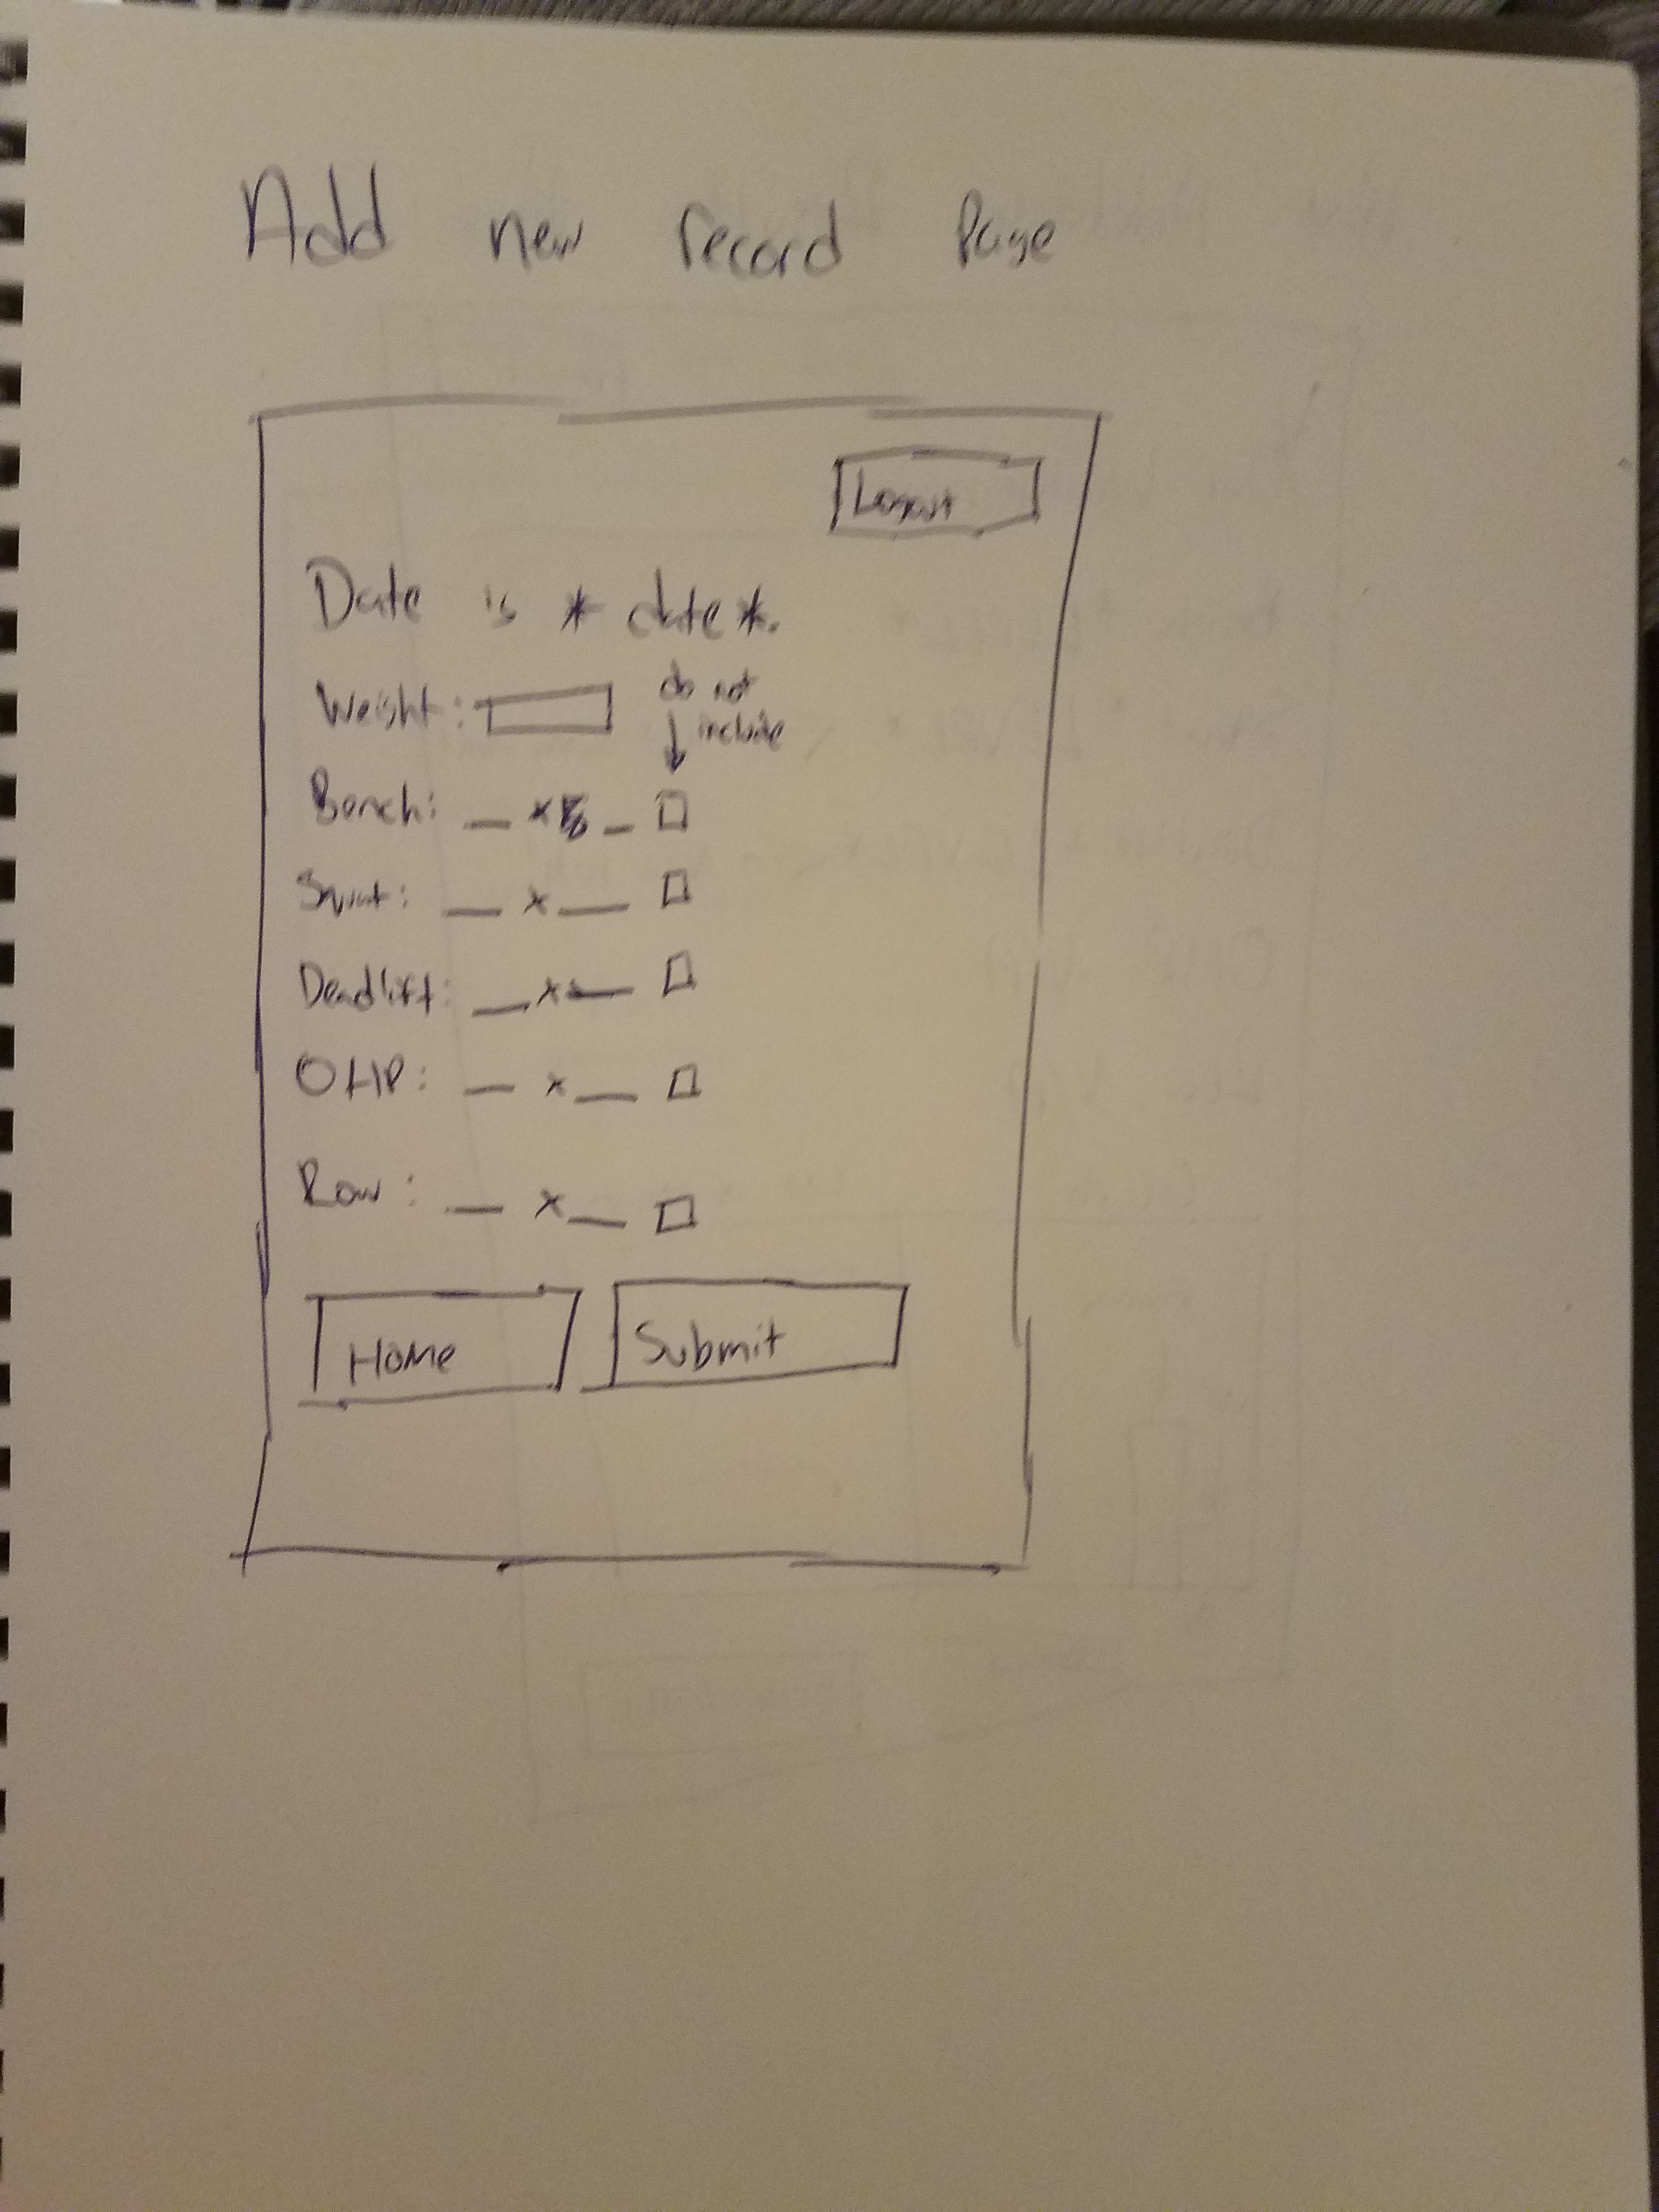 Add new record Page
Logout
Date is * date *.
Weight:
do not
include
Bench: _ x _
Squat: _ x _
Deadlift: _ x _
OHP: _ x _
Row: _ x _
Home
Submit